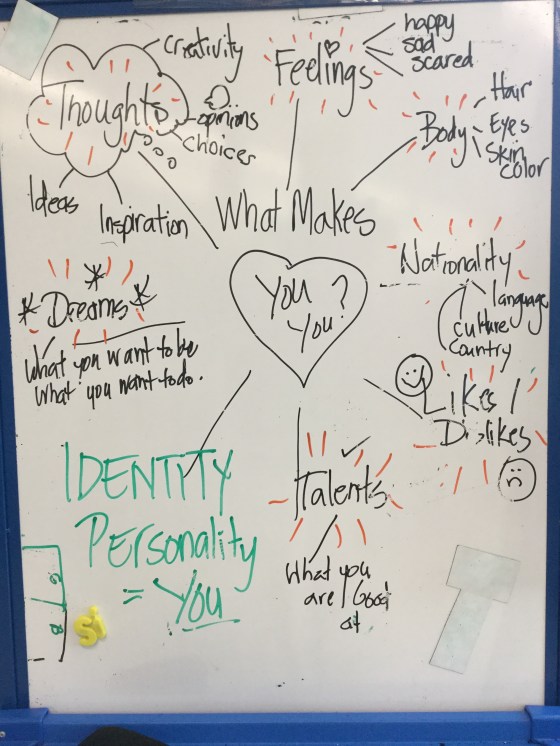 Thoughts
Creativity
opinions
choices
Ideas
Inspiration
Feelings
happy
sad
scared
Body
Hair
Eyes
Skin
color
What Makes
You ?
You
Nationality
language
culture
Country
Dreams
What you want to be
What you want to do.
Likes /
Dislikes
Talents
What you
are Good
at
IDENTITY
Personality
= You
si